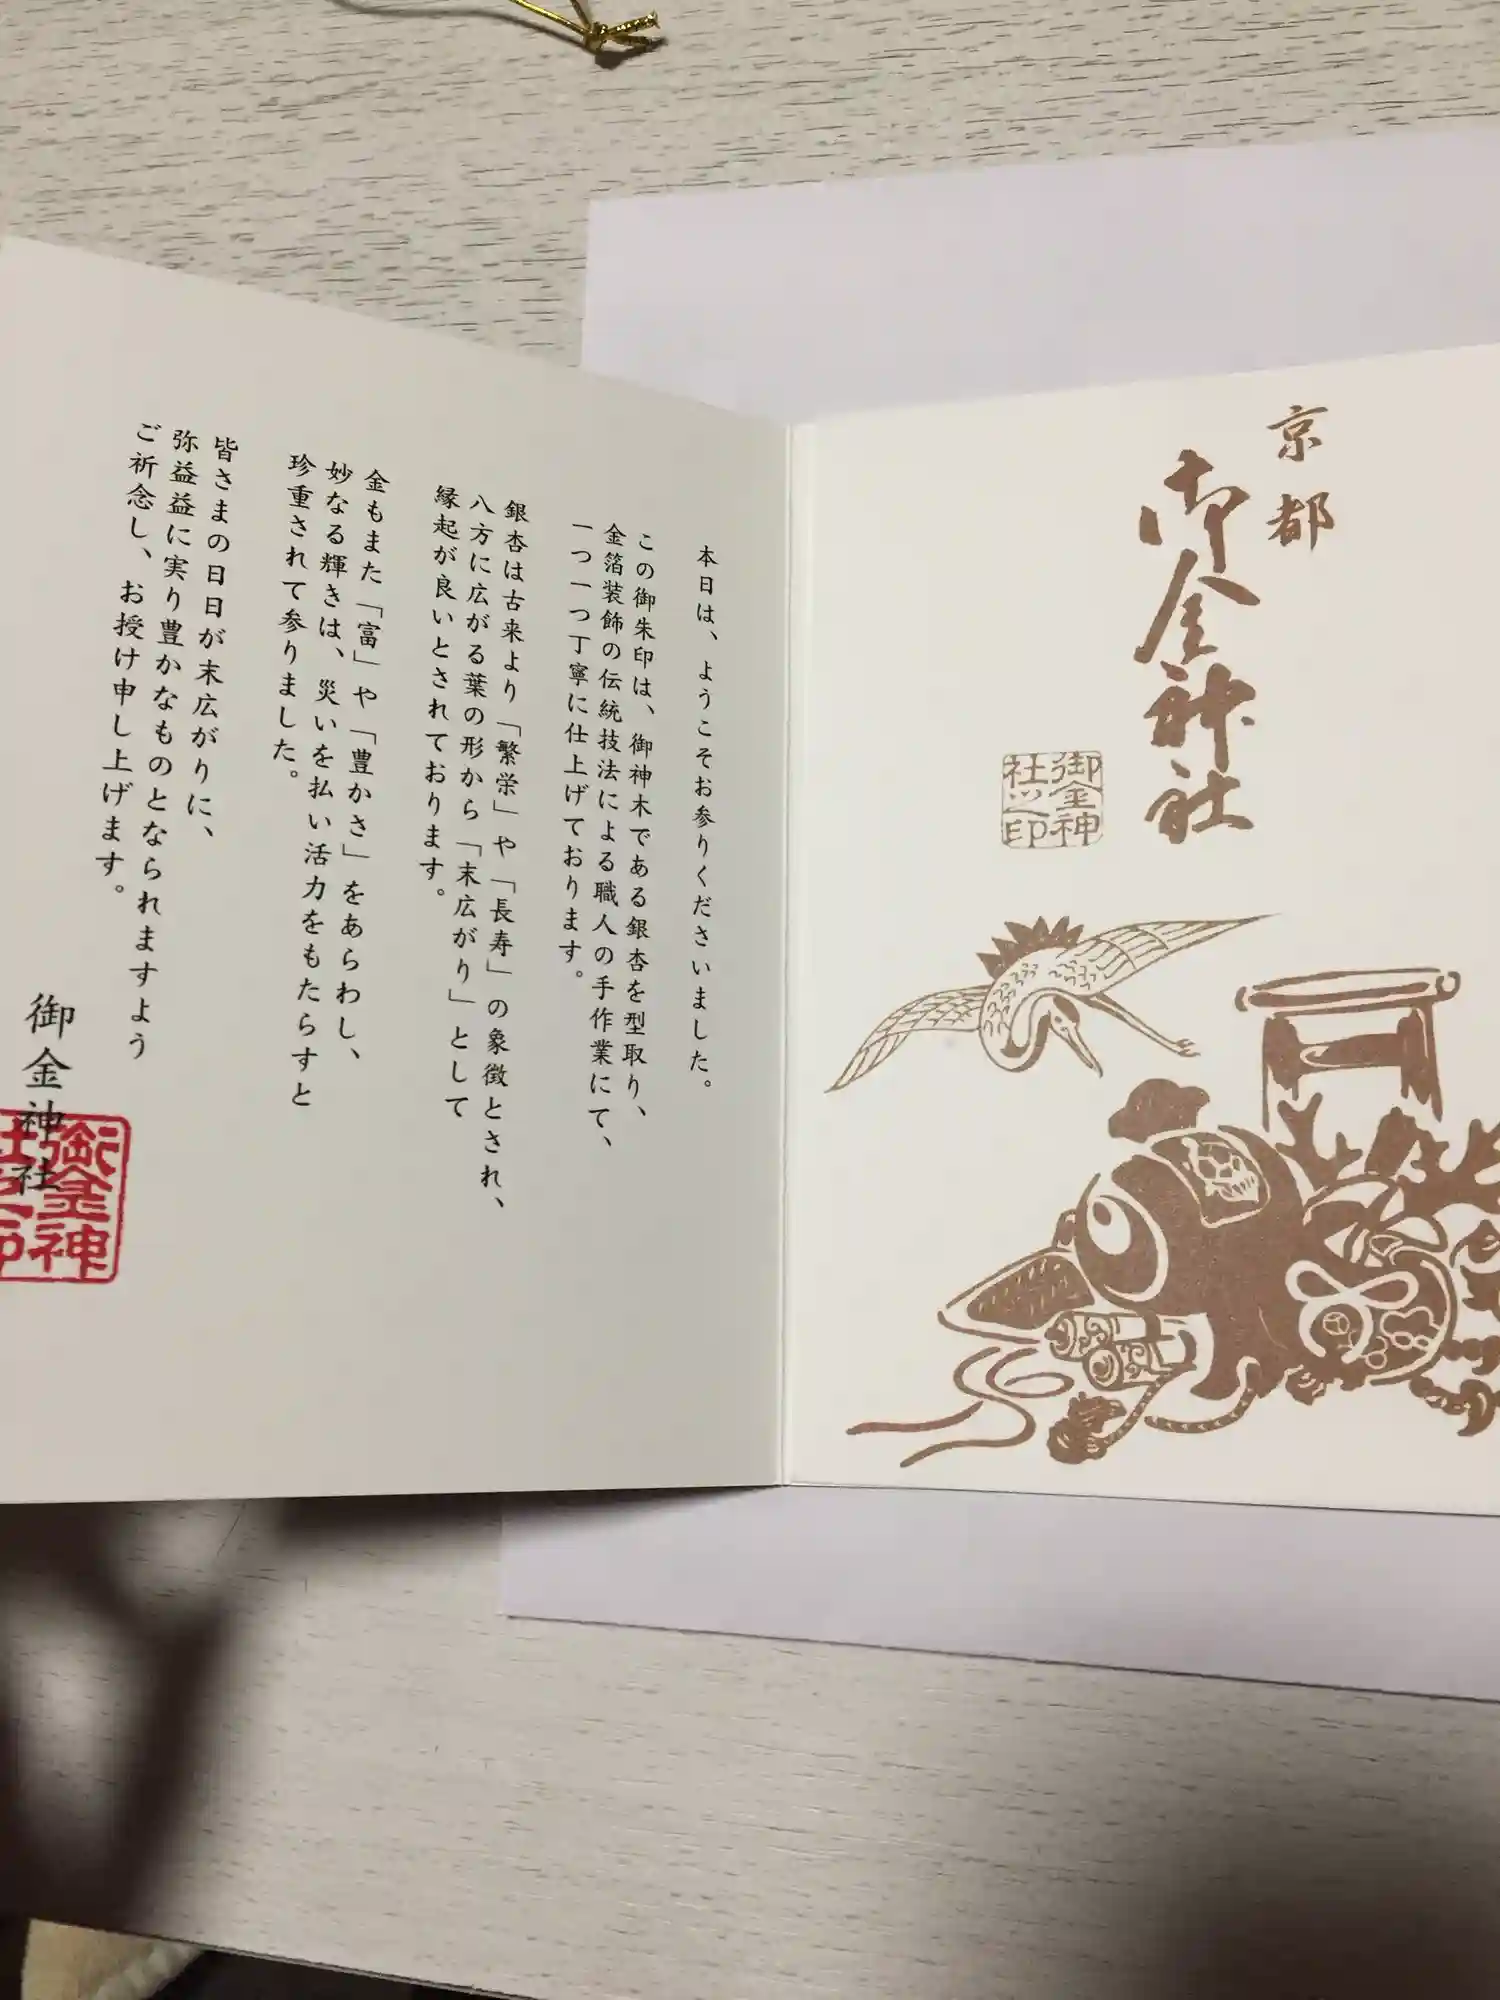 京都
御金神社
御金神
社之印
本日は、ようこそお参りくださいました。
この御朱印は、御神木である銀杏を型取り、
金箔装飾の伝統技法による職人の手作業にて、
一つ一つ丁寧に仕上げております。
銀杏は古来より「繁栄」や「長寿」の象徴とされ、
八方に広がる葉の形から「末広がり」として
縁起が良いとされております。
金もまた「富」や「豊かさ」をあらわし、
妙なる輝きは、災いを払い活力をもたらすと
珍重されて参りました。
皆さまの日日が末広がりに、
弥益益に実り豊かなものとなられますよう
ご祈念し、お授け申し上げます。
御金神社
御金神
社之印